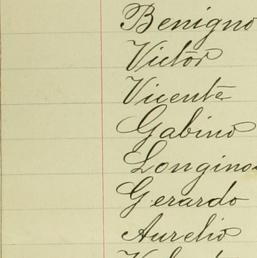 Benigno
Victor
Vicente
Gabino
Longinos
Gerardo
Aurelio